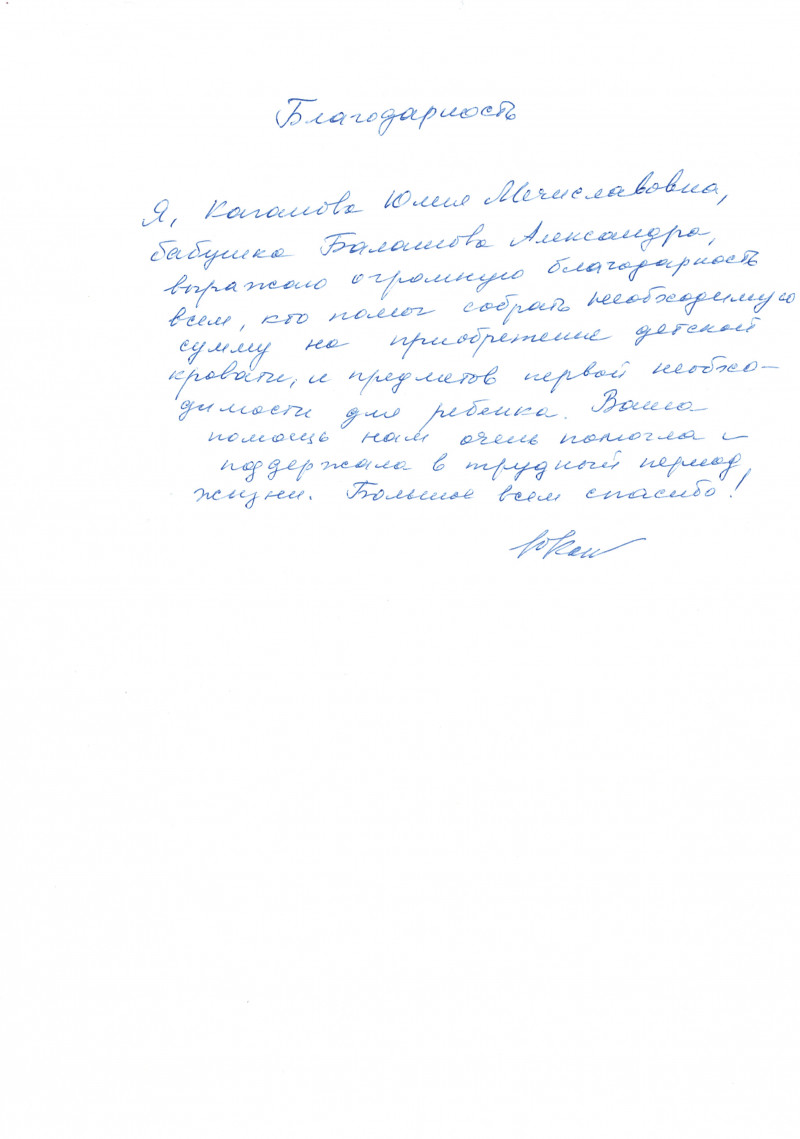 Благодарность
Я, Каганова Юлия Мечиславовна,
бабушка Балашова Александра,
выражаю огромную благодарность
всем, кто помог собрать необходимую
сумму на приобретение детской
кровати, и предметов первой необхо-
димости для ребенка. Ваша
помощь нам очень помогла и
поддержала в трудный период
жизни. Большое всем спасибо!